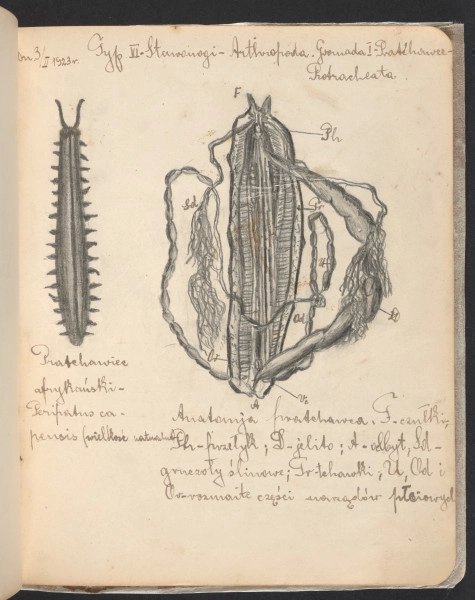 dn 3/II 1923r. Typ VI-Stawonogi-Arthropoda. Gromada I-Pratchawce-
Protracheata.
F
Ph
Sd
Tr
U
Od
D
Ov
A
Pratchawiec
afrykański-
Peripatus ca-
pensis (wielkość naturalna)
Anatomja pratchawca. F-czułki;
Ph-przełyk; D-jelito; A-odbyt, Sd-
gruczoły ślinowe; Tr-tchawki; U, Od i
Ov-rozmaite części narządów płciowych